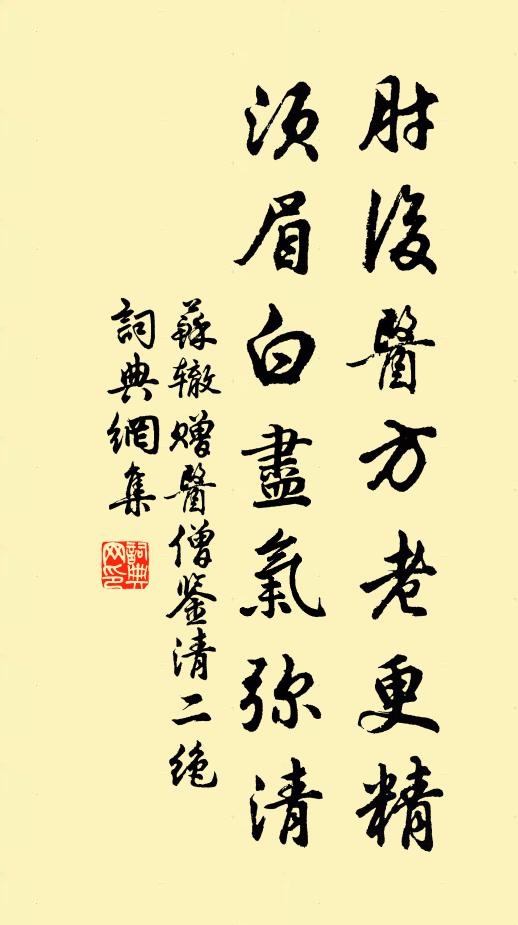 肘後醫方老更精
須眉白盡氣彌清
蘇辙赠醫僧鉴清二绝
詞典網集
詞典網印